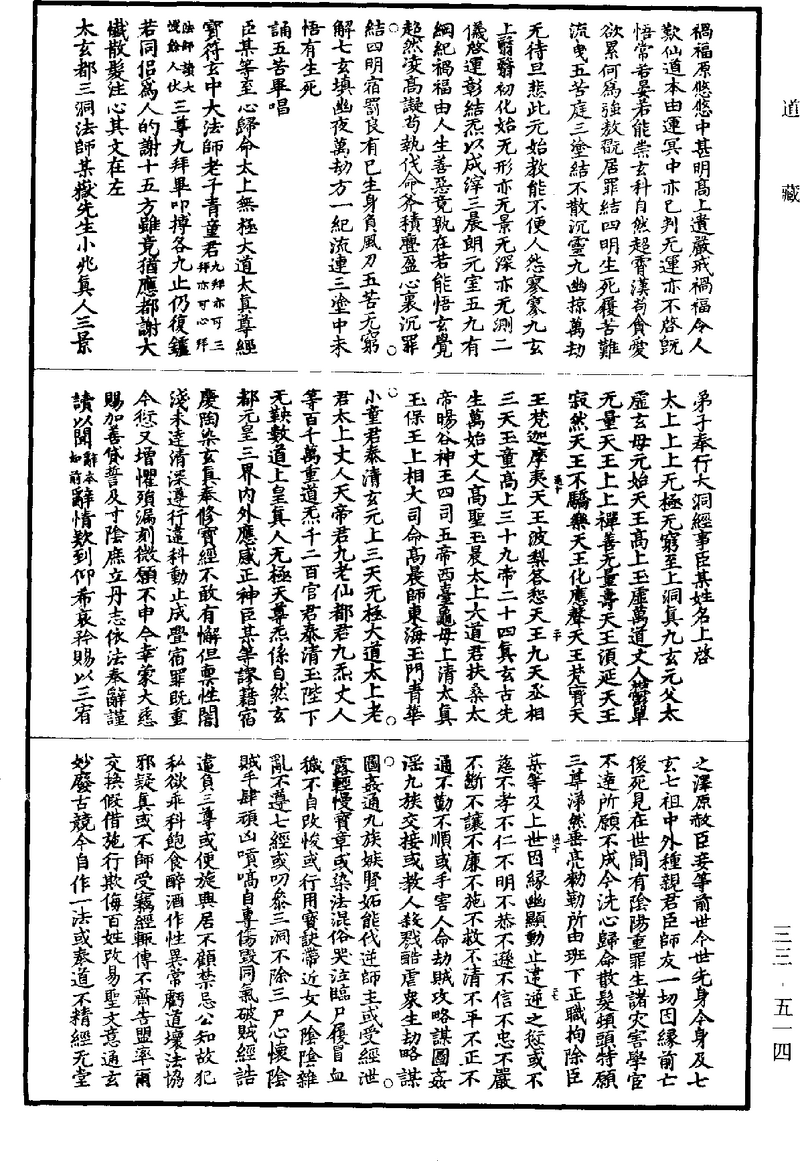 道藏
禍福原悠悠中甚明高上遺嚴戒禍福令人
歎仙道本由運冥中亦已判无運亦不啓既
悟常若晏若能崇玄科自然超霄漢苟貪愛
欲累何為強教翫居罪結四明生死履苦難
流曳五苦庭三塗結不散沉靈九幽掠萬劫
无待旦悲此元始教能不便人怨寥寥九玄
上翳翳初化始无形亦无景无深亦无測二
儀啓運彰結炁以成滓三晨朗元室五九有
綱紀禍福由人生善惡竟孰在若能悟玄覺
超然淩高擬苟執伐命斧積釁盈心裏沉罪
結四明宿罰良有已生身負風刀五苦无窮
解七玄填幽夜萬劫方一紀流連三塗中未
悟有生死
誦五苦畢唱
臣某等至心歸命太上無極大道太真尊經
寶符玄中大法師老子青童君九拜亦可三拜亦可心拜
法師讀大謾給人伏三尊九拜畢叩搏各九止仍復鑪
若同侶為人的謝十五方雖竟猶應都謝大
懺散髮注心其文在左
太玄都三洞法師某嶽先生小兆真人三景
弟子奉行大洞經事臣某姓名上啓
太上上上无極无窮至上洞真九玄元父太
虛玄母元始天王高上玉虛萬道丈人欝單
无量天王上上禪善无量壽天王須延天王
寂然天王不驕樂天王化應聲天王梵寶天
王梵迦摩夷天王波梨答惒天王九天丞相
三天玉童高上三十九帝二十四真玄古先
生萬始丈人高聖玉晨太上大道君扶桑太
帝暘谷神王四司五帝西臺龜母上清太真
玉保王上相大司命高晨師東海玉門青華
小童君泰清玄元上三天无極大道太上老
君太上丈人天帝君九老仙都君九炁丈人
等百千萬重道炁千二百官君泰清玉陛下
无鞅數道上皇真人无極天尊炁係自然玄
都元皇三界內外應感正神臣某等謬籍宿
慶陶染玄真奉修寶經不敢有懈但稟性闇
淺未達清深遵行違科動止成舋宿罪既重
今愆又增懼殞漏刻微願不申今幸蒙大慈
賜加善貸誓及寸陰庶立丹志依法奉辭謹
讀以聞辭本如前辭情欵到仰希哀矜賜以三宥
之澤原赦臣妾等前世今世先身今身及七
玄七祖中外種親君臣師友一切因緣前亡
後死見在世間有陰陽重罪生諸灾害學官
不達所願不成今洗心歸命散髮頓頭特願
三尊渧然垂亮勑勒所由班下正職拘除臣
某等及上世因緣幽顯動止違逆之愆或不
慈不孝不仁不明不恭不遜不信不忠不嚴
不斷不讓不廉不施不救不清不平不正不
通不勤不順或手害人命劫賊攻略謀圖姦
淫九族交接或教人殺戮酷虐衆生劫略謀
圖姦通九族嫉賢妬能代逆師主或受經泄
露輕慢寶章或染法混俗哭泣臨尸履冒血
穢不自改悛或行用寶訣帶近女人陰陰雜
亂不遵七經或叨叅三洞不除三尸心懷陰
賊手肆頑凶嗔嗃自專傷毀同氣破賊經誥
違負三尊或便旋興居不顧禁忌公知故犯
私欲乖科飽食醉酒作性異常虧道壞法協
邪疑真或不師受竊經輒傳不齎告盟率爾
交換假借施行欺侮百姓改易聖文意通玄
妙廢古競今自作一法或奉道不精經无堂
三三·五一四